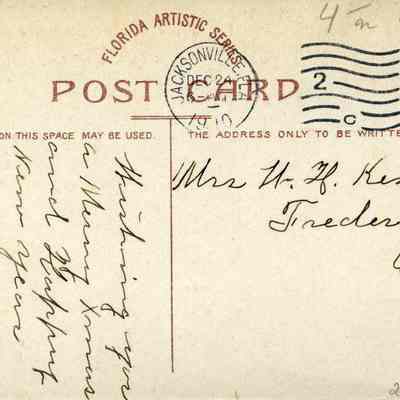 4
FLORIDA ARTISTIC SERIES
JACKSONVILLE, FLA
DEC 24
1910
2
C
POST CARD
ON THIS SPACE MAY BE USED.
THE ADDRESS ONLY TO BE WRITTE
Wishing you
a Merry Xmas
and Happy
New Year
Mrs W. H. Kes
Freder
2